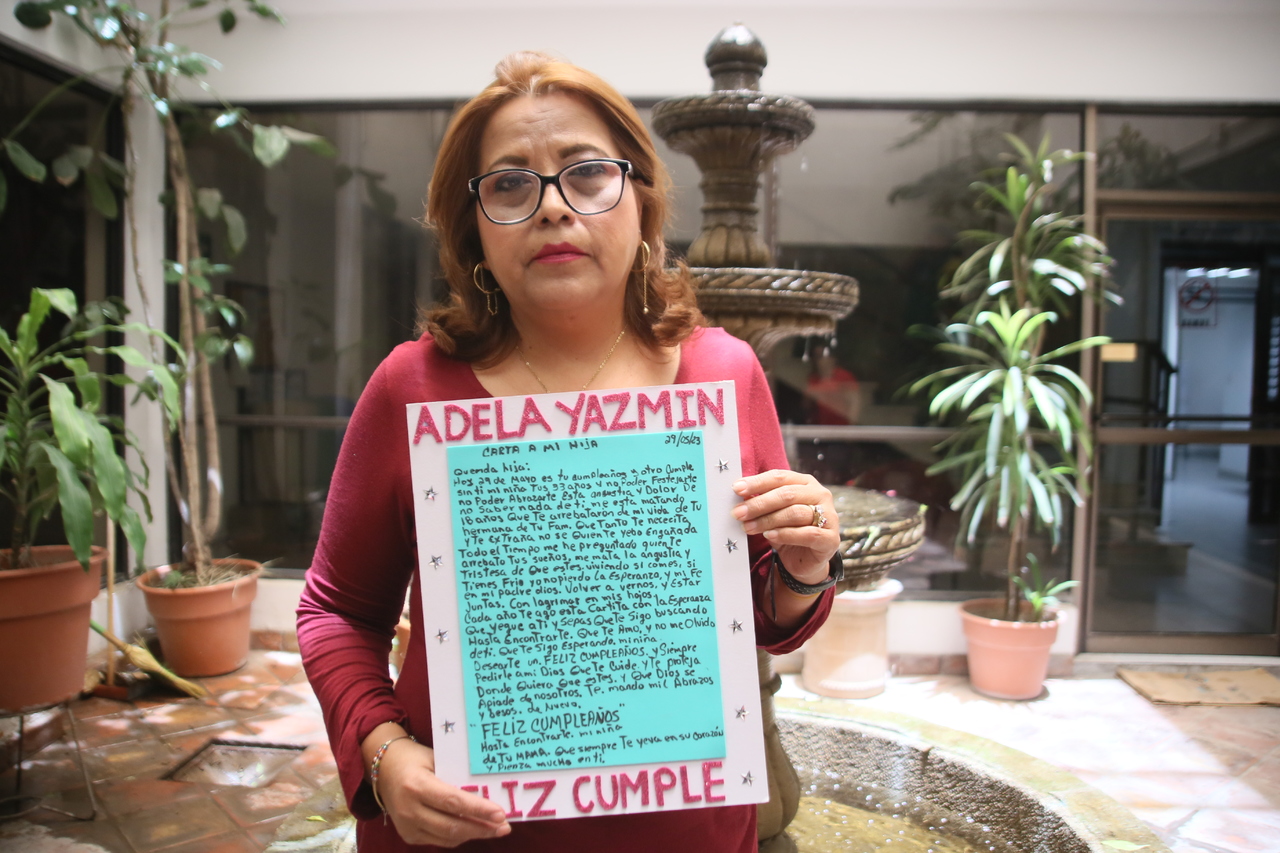 ADELA YAZMIN
CARTA A MI HIJA 29/05/23
Querida hija:
Hoy 29 de Mayo es tu cumpleaños y otro Cumple
sin ti mi niña Tus 33 años y no poder Festejarte
no Poder Abrazarte Esta angustia y Dolor De
no Saber nada de ti, me esta matando
18 años Que Te arrebataron de mi vida, de Tu
hermana de Tu Fam. Que Tanto Te necesita
y Te Extraña no se Quien te yebo Engañada
Todo el Tiempo me he preguntado quien Te
arrebato Tus sueños, me mata la angustia y
Tristesa de Que estes viviendo si comes, si
Tienes Frio yo no pierdo la Esperanza, y mi Fe
en mi padre dios. Volver a vernos, y Estar
Juntas. Con lagrimas en mis hojos
Cada año Te ago esta Cartita con la Esperanza
Que yegue a Ti y sepas Que Te Sigo buscando
Hasta Encontrarte. Que Te Amo, y no me Olvido
de ti. Que Te Sigo Esperando. mi niña.
Desearte un. FELIZ CUMPLEAÑOS. y Siempre
Pedirle a mi Dios Que Te Cuide. y Te proteja
Donde Quiera Que estes. y Que Dios se
Apiade de nosotros. Te. mando mil Abrazos
y besos. de Nuevo.
"FELIZ CUMPLEAÑOS"
Hasta Encontrarte. mi niña
de Tu MAMA. Que siempre Te yeva en su Corazón
y Pienza mucho en ti.
FELIZ CUMPLE